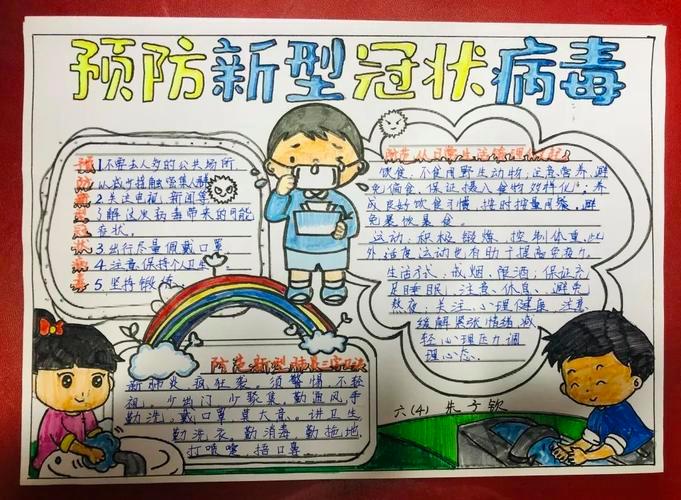 预防新型冠状病毒
预防冠状病毒
1不要去人多的公共场所
从减少接触密集人群
2.关注电视、新闻等
了解这次病毒带来的可能
症状。
3出行尽量佩戴口罩
4.注意保持个人卫生
5.坚持锻炼
防范从日常生活管理做起
饮食:不食用野生动物;注意营养,避
免偏食,保证摄入食物多样化;养
成良好饮食习惯,按时按量用餐,避
免暴饮暴食。
运动:积极锻炼,控制体重,此
外适度运动也有助于提高免疫力。
生活方式:戒烟、限酒;保证充
足睡眠,注意休息、避免
熬夜,关注心理健康,注意
缓解紧张情绪,减
轻心理压力,调
理心态。
防范新型肺炎三字口诀
新肺炎,疯狂袭。须警惕,不轻
视。少出门,少聚集。勤通风,手
勤洗。戴口罩,莫大意。讲卫生,
勤洗衣。勤消毒,勤拖地。
打喷嚏,捂口鼻
六(4) 朱子钦